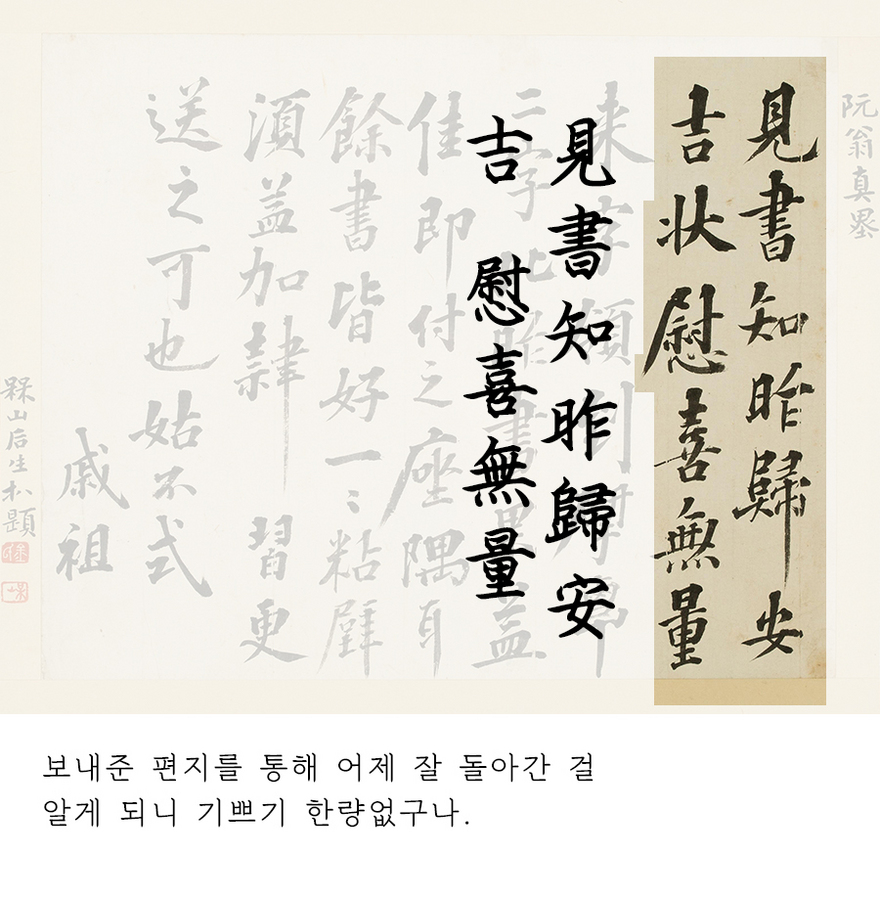 阮翁真墨
見書知昨歸安
吉狀慰喜無量
見書知昨歸安
吉 慰喜無量
来字
二字
佳即付之座隅耳
餘書皆好一〻粘壁
須益加隷習更
送之可也姑不式
戚祖
槑山后生題
보내준 편지를 통해 어제 잘 돌아간 걸
알게 되니 기쁘기 한량없구나.